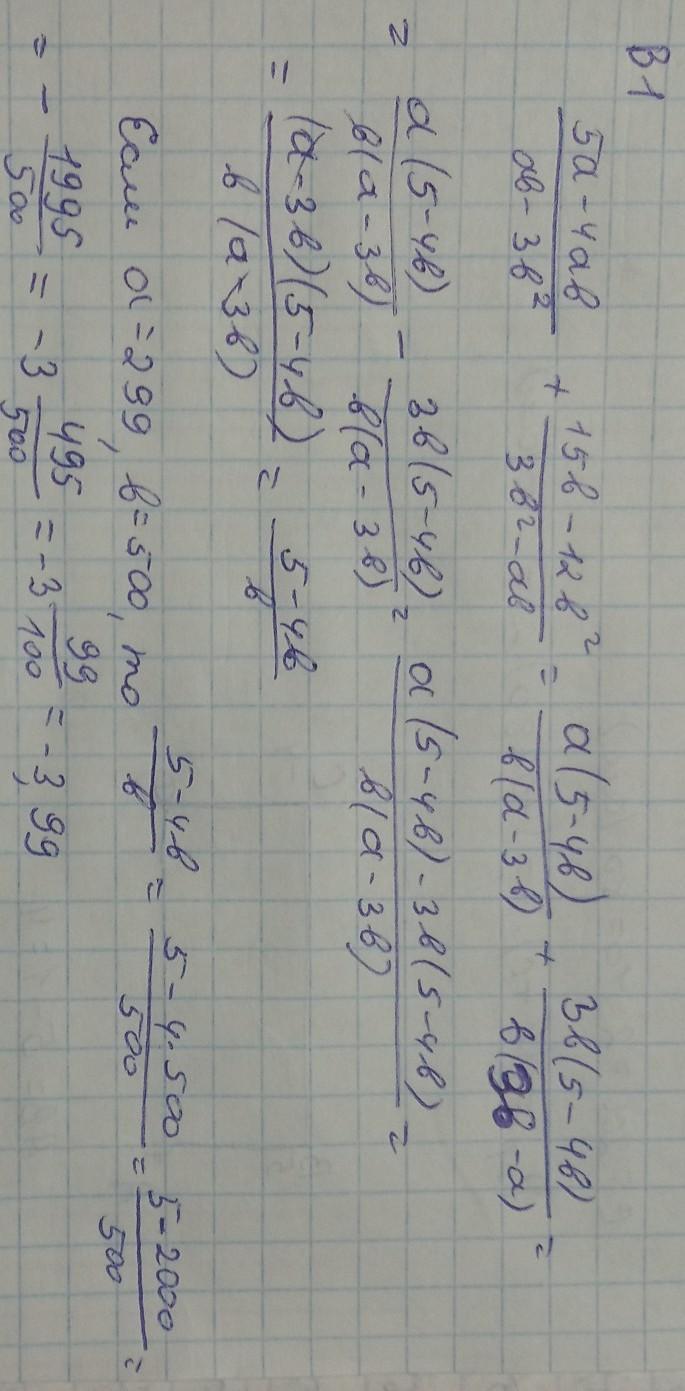 В1
(5a - 4ab)/(ab - 3b²) + (15b - 12b²)/(3b² - ab) = a(5 - 4b)/b(a - 3b) + 3b(5 - 4b)/b(3b - a) =
= a(5 - 4b)/b(a - 3b) - 3b(5 - 4b)/b(a - 3b) = (a(5 - 4b) - 3b(5 - 4b))/b(a - 3b) =
= (a - 3b)(5 - 4b)/b(a - 3b) = (5 - 4b)/b
Если a = 299, b = 500, то (5 - 4b)/b = (5 - 4·500)/500 = (5 - 2000)/500 =
= - 1995/500 = -3 495/500 = -3 99/100 = -3,99